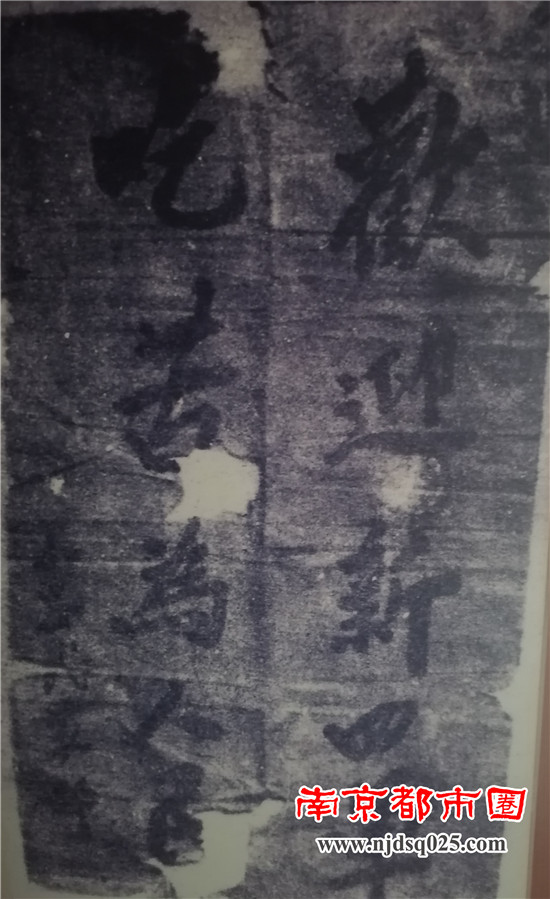 歡迎新四軍
吃苦為人民
南京都市圈
www.njdsq025.com